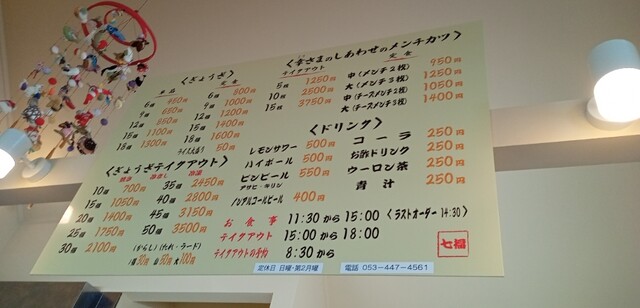 〈ぎょうざ〉
単品 定食
6個 450円 6個 800円
9個 650円 9個 1000円
12個 850円 12個 1200円
15個 1100円 15個 1400円
18個 1300円 18個 1600円
ライス大盛り 50円
〈ぎょうざテイクアウト〉
10個 700円 35個 2450円
15個 1050円 40個 2800円
20個 1400円 45個 3150円
25個 1750円 50個 3500円
30個 2100円 (からし) (たれ・ラード)
〈幸さまのしあわせのメンチカツ〉
テイクアウト 定食
5枚 1250円 中(メンチ2枚) 950円
10枚 2500円 大(メンチ3枚) 1250円
15枚 3750円 中(チーズメンチ2枚) 1050円
大(チーズメンチ3枚) 1400円
〈ドリンク〉
レモンサワー 500円 コーラ 250円
ハイボール 500円 お酢ドリンク 250円
ビンビール 550円 ウーロン茶 250円
アサヒ・キリン
青汁 250円
ノンアルコールビール 400円
お食事 11:30から15:00 〈ラストオーダー 14:30〉
テイクアウト 15:00から18:00
テイクアウトの予約 8:30から
七福
定休日 日曜・第2月曜 電話 053-447-4561